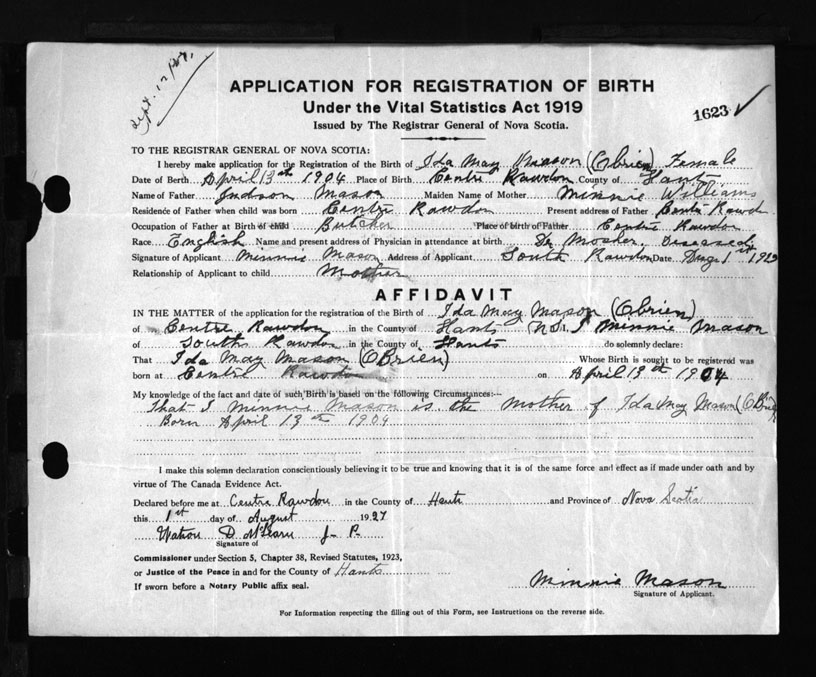 Sept. 17/27.
APPLICATION FOR REGISTRATION OF BIRTH
Under the Vital Statistics Act 1919
1623
Issued by The Registrar General of Nova Scotia.
TO THE REGISTRAR GENERAL OF NOVA SCOTIA:
I hereby make application for the Registration of the Birth of Ida May Mason (OBrien) Female
Date of Birth April 13th 1904 Place of Birth Centre Rawdon County of Hants
Name of Father Judson Mason Maiden Name of Mother Minnie Williams
Residence of Father when child was born Centre Rawdon Present address of Father Centre Rawdon
Occupation of Father at Birth of child Butcher Place of birth of Father Centre Rawdon
Race English Name and present address of Physician in attendance at birth Dr Mosher. Deceased
Signature of Applicant Minnie Mason Address of Applicant South Rawdon Date Aug 1st 1927
Relationship of Applicant to child Mother
AFFIDAVIT
IN THE MATTER of the application for the registration of Birth of Ida May Mason (Obrien)
of Centre Rawdon in the County of Hants N.S. I Minnie Mason
of South Rawdon in the County of Hants do solemnly declare:
That Ida May Mason (OBrien) Whose Birth is sought to be registered was
born at Centre Rawdon on April 13th 1904
My knowledge of the fact and date of such Birth is based on the following Circumstances:—
That I Minnie Mason is the Mother of Ida May Mason (OBrien)
Born April 13th 1904
I make this solemn declaration conscientiously believing it to be true and knowing that it is of the same force and effect as if made under oath and by
virtue of The Canada Evidence Act.
Declared before me at Centre Rawdon in the County of Hants and Province of Nova Scotia
this 1st day of August 1927
Watson D. McLearn J. P.
Signature of
Commissioner under Section 5, Chapter 38, Revised Statutes, 1923,
or Justice of the Peace in and for the County of Hants
If sworn before a Notary Public affix seal.
Minnie Mason
Signature of Applicant.
For Information respecting the filling out of this Form, see Instructions on the reverse side.